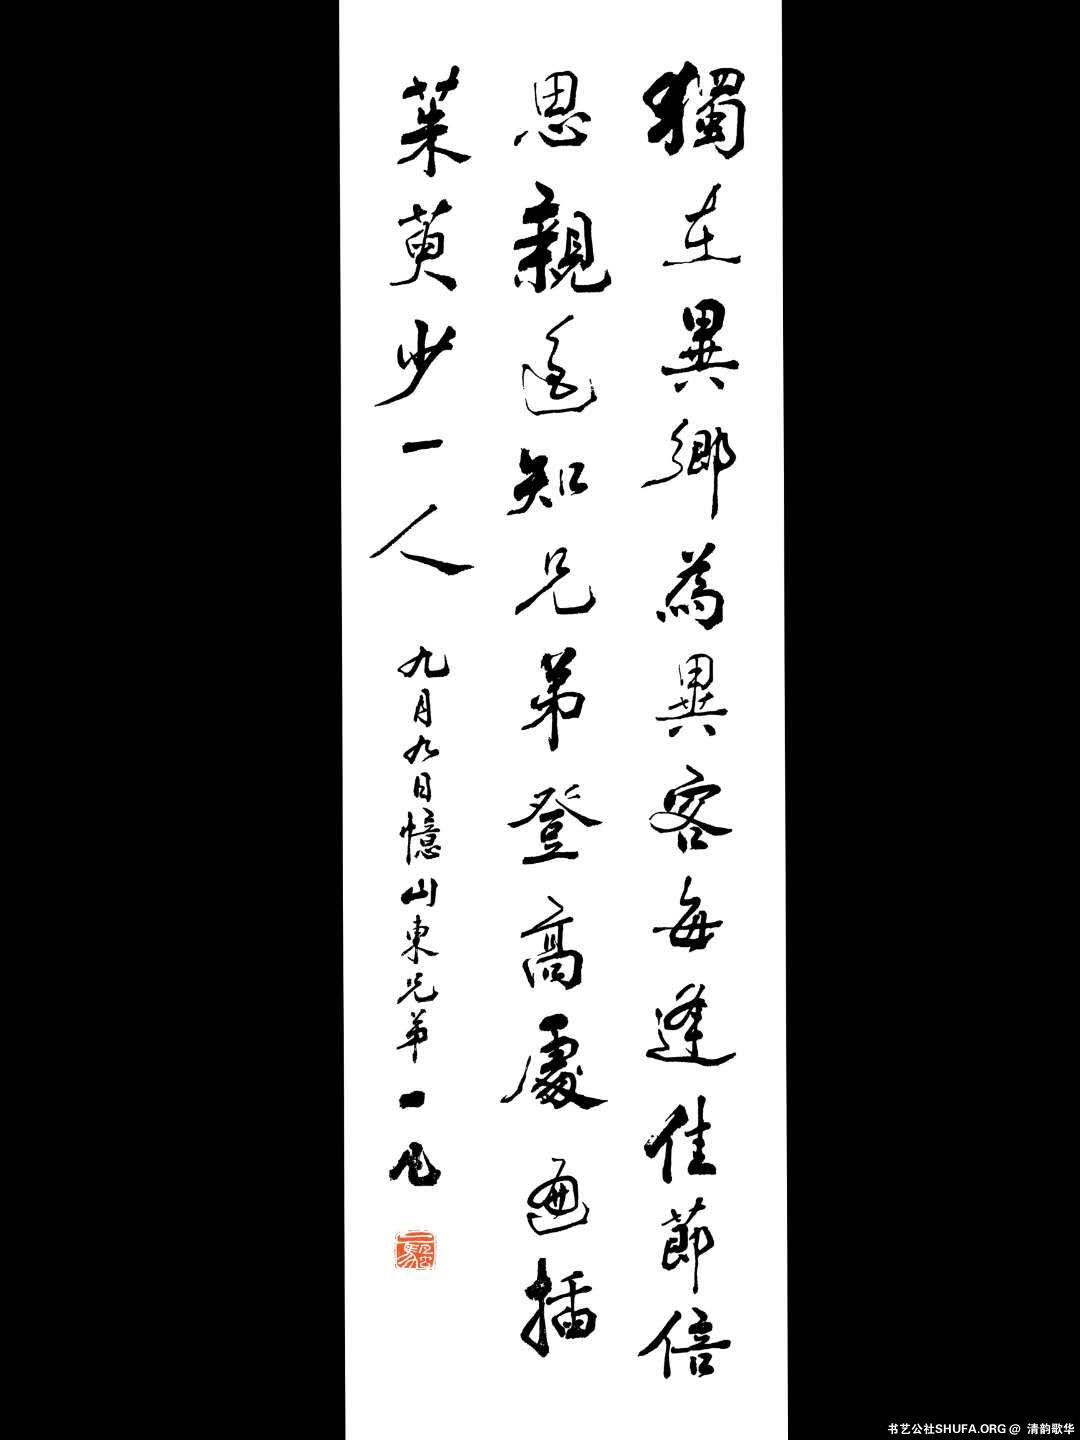 獨在異鄉為異客每逢佳節倍
思親遥知兄弟登高處遍插
茱萸少一人
九月九日憶山東兄弟 一凡
书艺公社SHUFA.ORG @ 清韵歌华